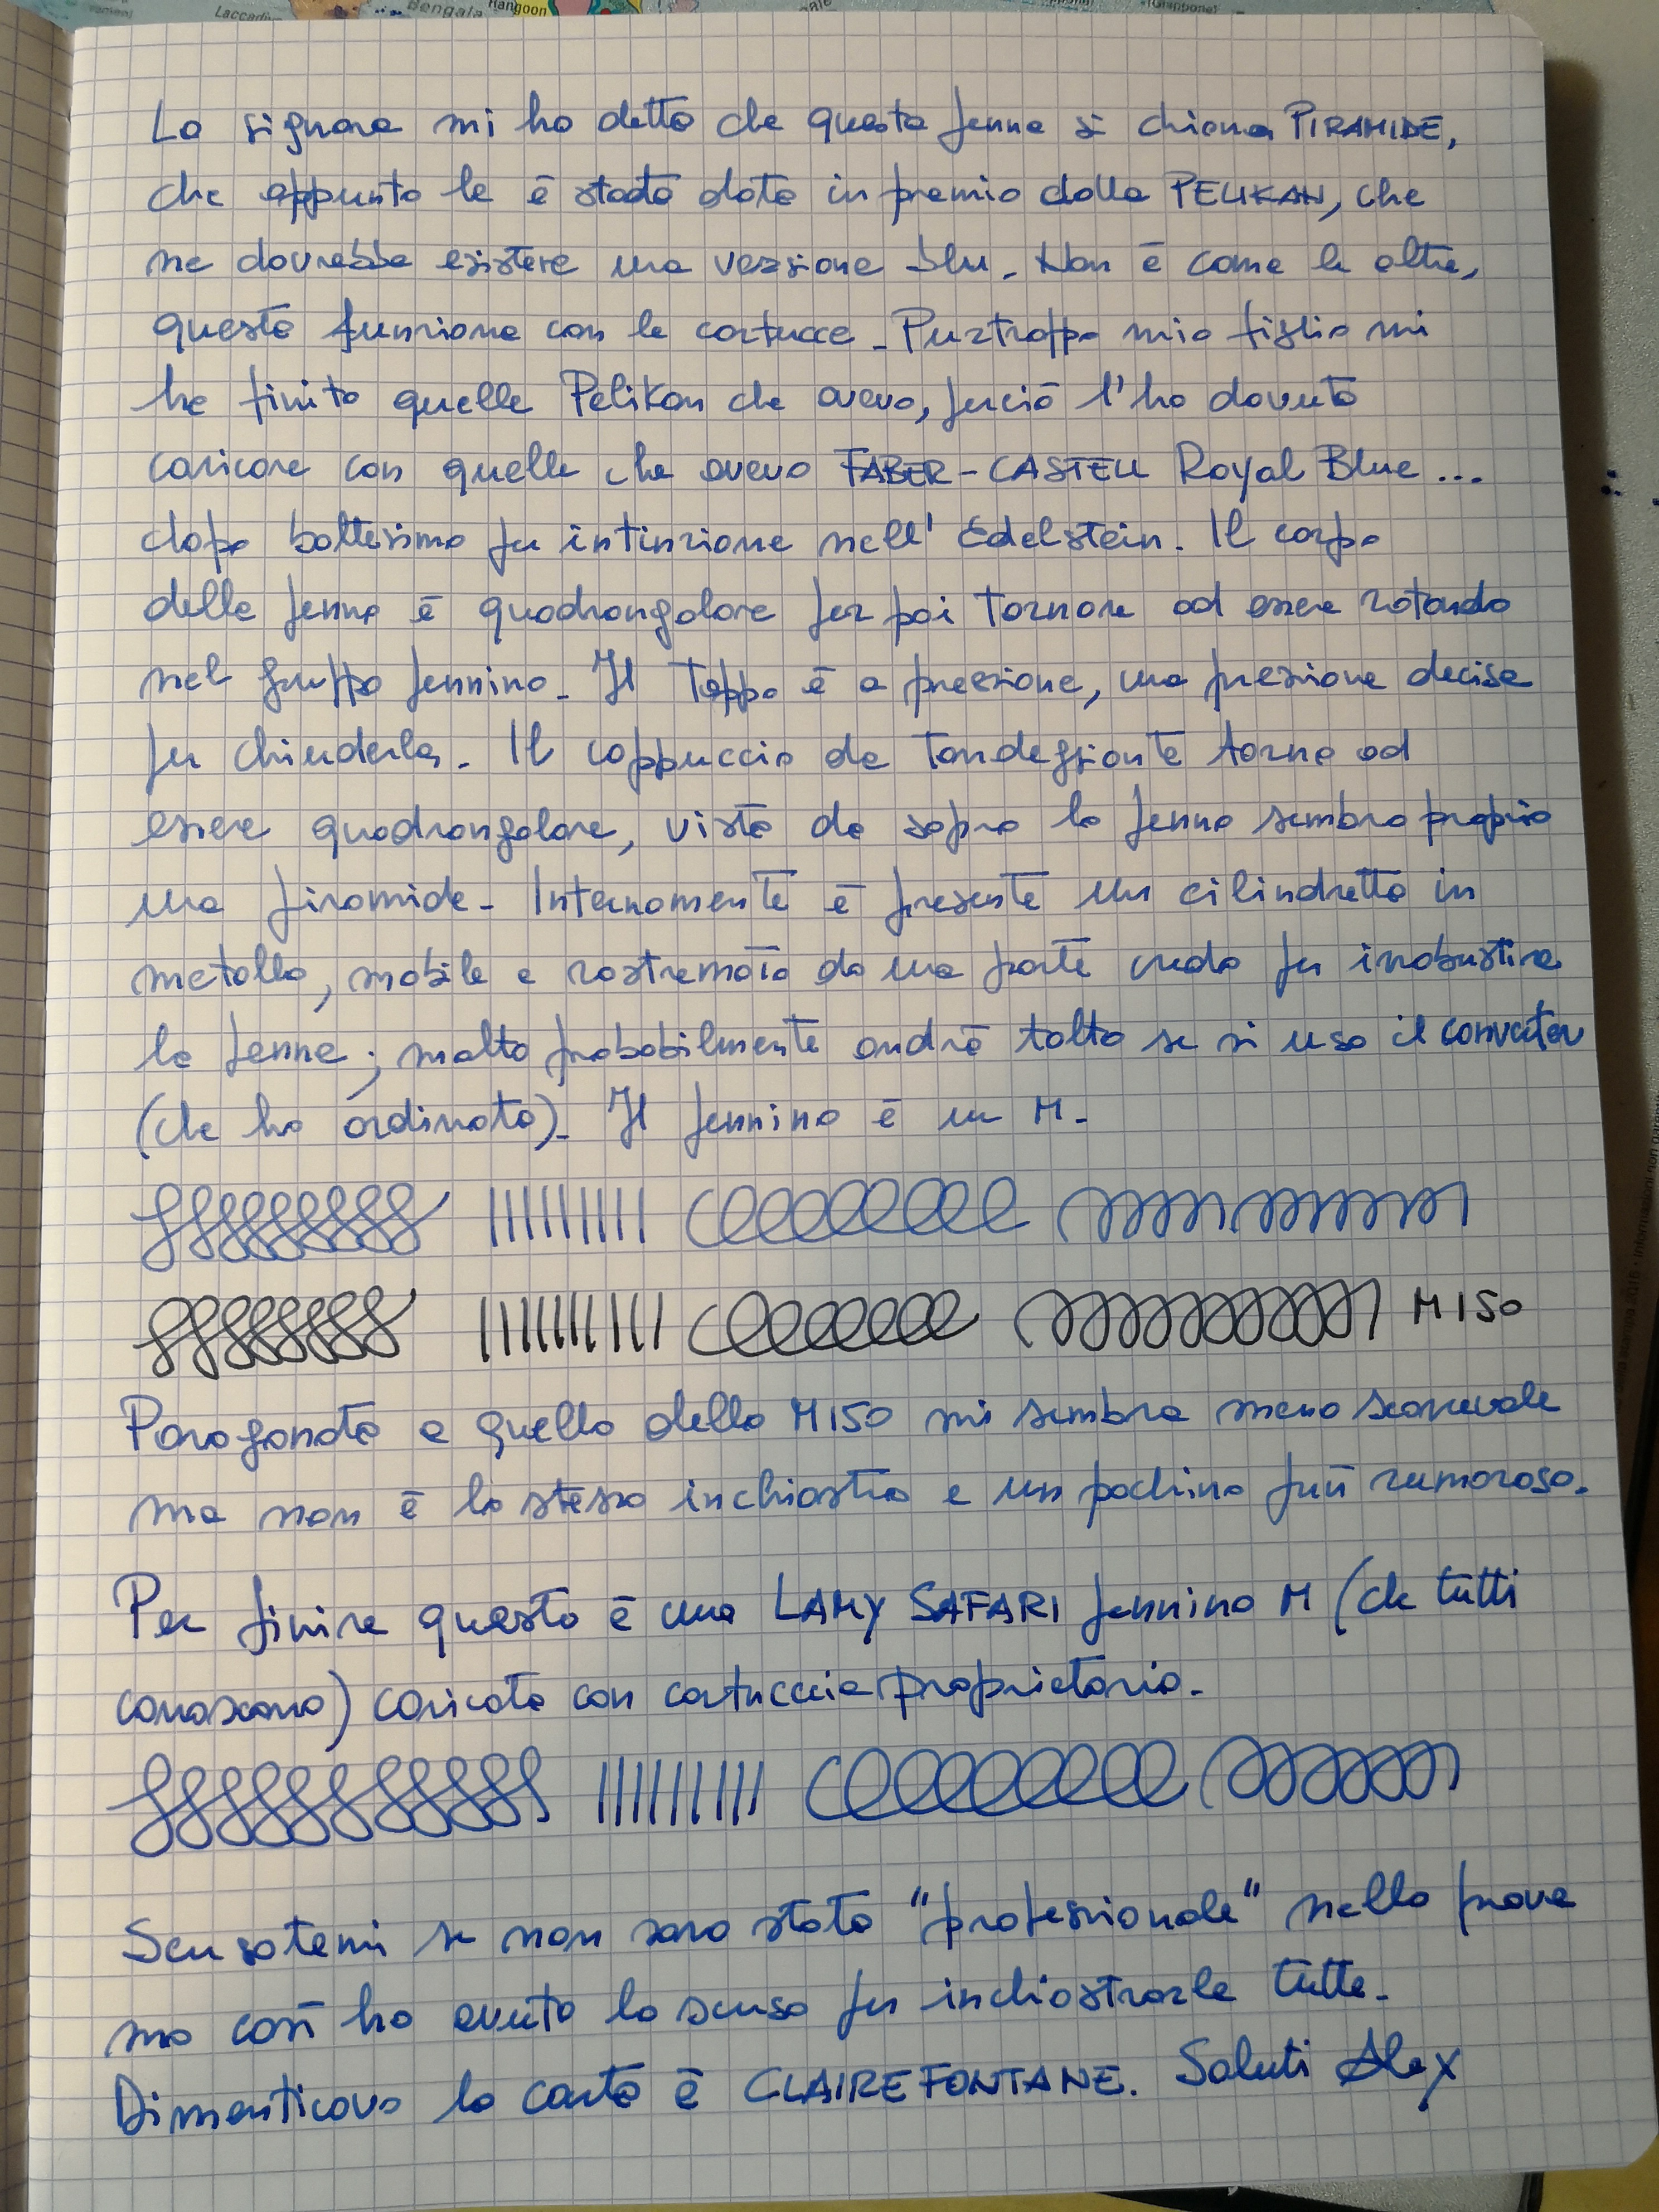 Laccadive
Bengala
Rangoon
(Giappone)
La signora mi ha detto che questa penna si chiama PIRAMIDE,
che appunto le è stata data in premio dalla PELIKAN, che
ne dovrebbe esistere una versione blu. Non è come le altre,
questa funziona con le cartucce. Purtroppo mio figlio mi
ha finito quelle Pelikan che avevo, perciò l'ho dovuta
caricare con quelle che avevo FABER-CASTELL Royal Blue...
dopo battesimo per intinzione nell'Edelstein. Il corpo
della penna è quadrangolare per poi tornare ad essere rotondo
nel gruppo pennino. Il tappo è a pressione, una pressione decisa
per chiuderla. Il cappuccio da tondeggiante torna ad
essere quadrangolare, vista da sopra la penna sembra proprio
una piramide. Internamente è presente un cilindretto in
metallo, mobile e rastremato da una parte credo per irrobustire
la penna; molto probabilmente andrà tolto se si usa il converter
(che ho ordinato). Il pennino è un M.
M150
Paragonato a quello della M150 mi sembra meno scorrevole
ma non è lo stesso inchiostro e un pochino più rumoroso.
Per finire questa è una LAMY SAFARI pennino M (che tutti
conoscono) caricata con cartuccia proprietaria.
Scusatemi se non sono stato "professionale" nelle prove
ma così ho avuto la scusa per inchiostrarle tutte.
Dimenticavo la carta è CLAIREFONTANE. Saluti Alex